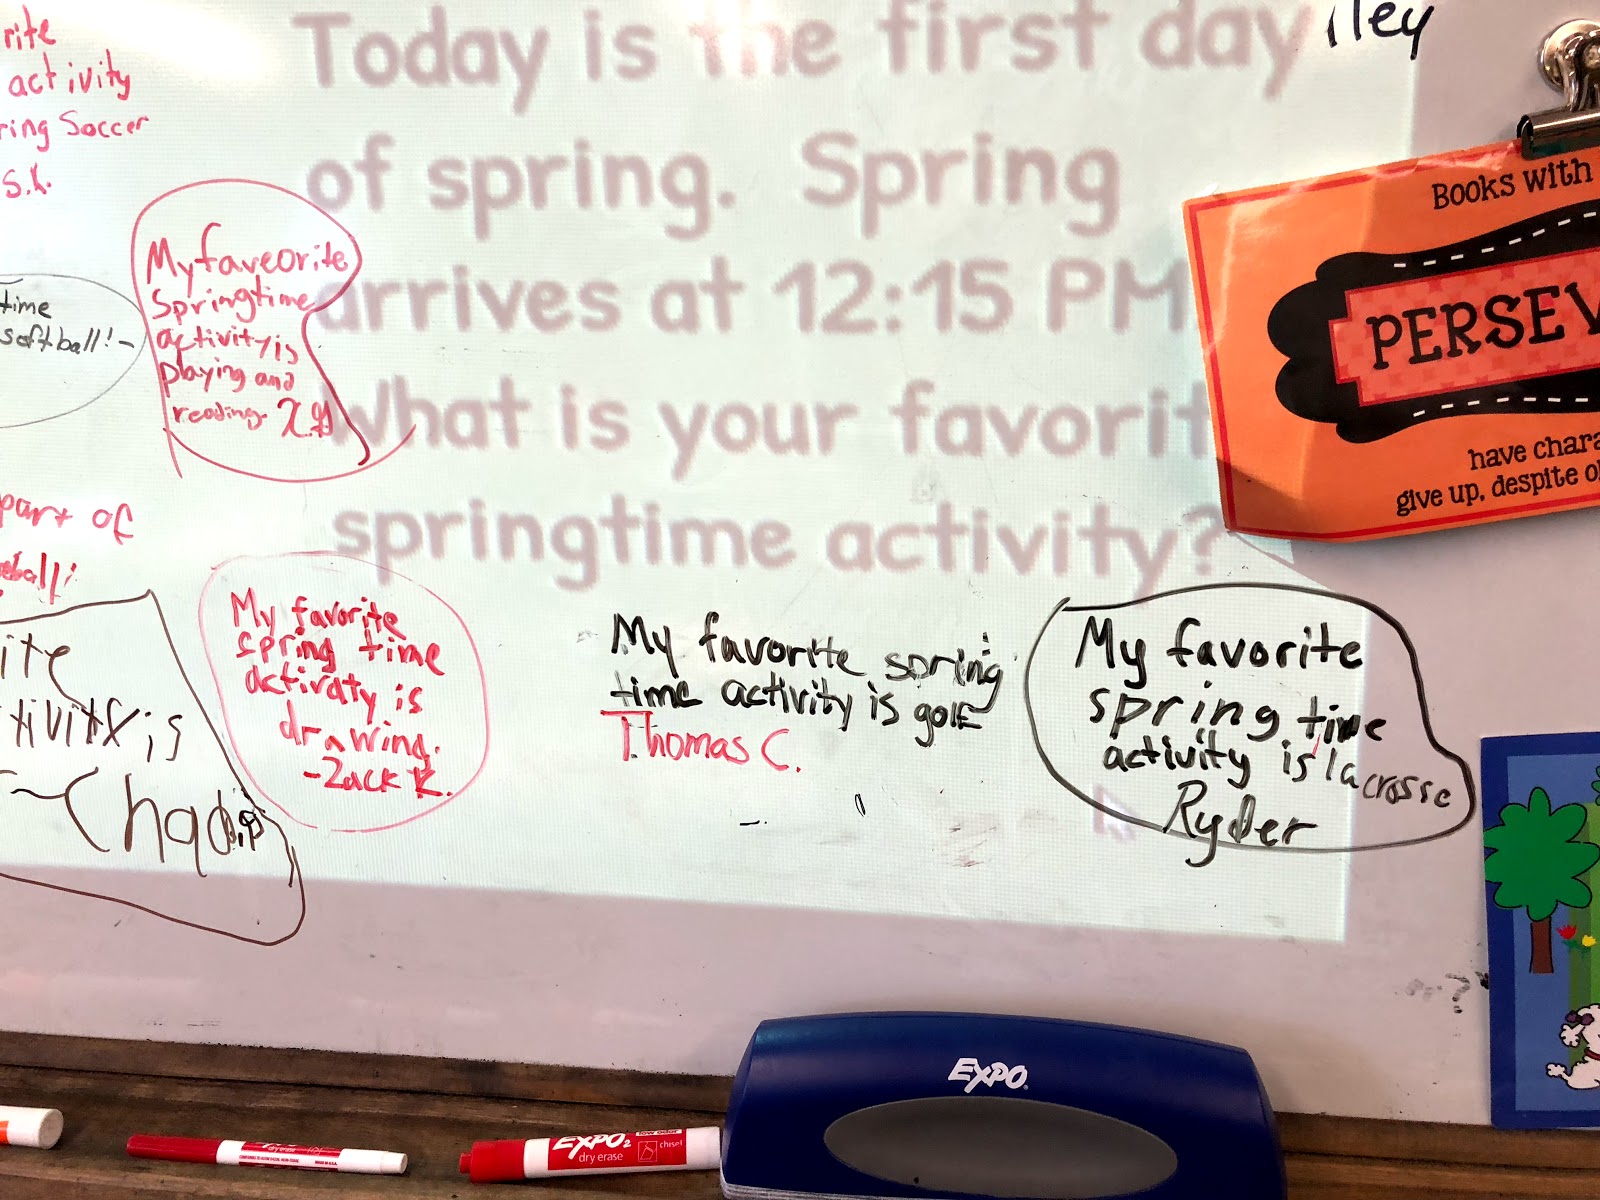 Today is the first day
of spring. Spring
arrives at 12:15 PM.
What is your favorit
springtime activity?
lley
rite
activity
ring Soccer
S.K.
time
softball! -
My faveorite
Springtime
activity is
playing and
reading.
part of
My favorite
spring time
activaty is
drawing.
-Zack K.
ite
tivity is
My favorite spring
time activity is golf
Thomas C.
My favorite
spring time
activity is lacrosse
Ryder
BOOKS WITH
PERSEV
have chara
give up, despite o
EXPO
EXPO
dry erase
EXPO2
low odor
dry erase
chisel